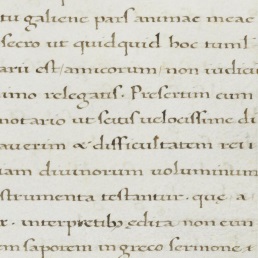 tu galiene pars animae meae
secro ut quidquid hoc tuml
arii est / amicorum / non iudici
imo relegatis. Presertim cum
notario ut scitis velocissime di
averim & difficultatem rei i
iam divinorum voluminum
strumenta testantur. que a
x. interpretib; edita non eun
em saporem in greco sermone t